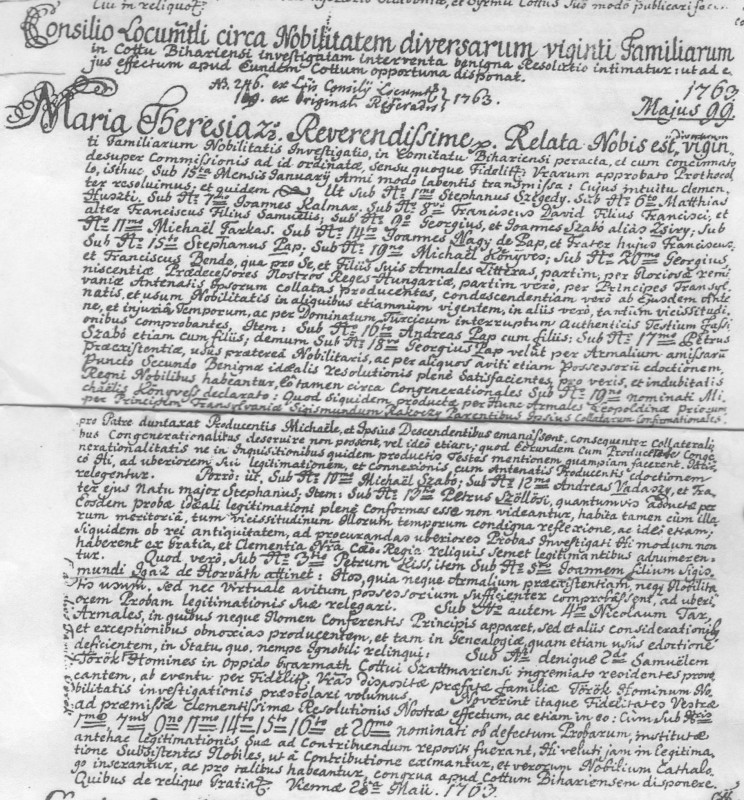 in reliquo
modo publicari
Consilio Locumtli circa Nobilitatem diversarum viginti Familiarum
in Cottu Bihariensi investigatam interventa benigna Resolutio intimatur: ut ad e
jus effectum apud Eundem Cottum opportuna disponat.
No. 246. ex Lit. Consilij Locumtis
169. ex Original. Referad. } 1763.
1763
Majus 99.
Maria Theresia &c. Reverendissime &c. Relata Nobis est, vigin
ti Familiarum Nobilitatis Investigatio, in Comitatu Bihariensi peracta, et cum concernente
desuper Commissionis ad id ordinatæ, sensu quoque Fidelitt. Vrarum approbato Prothocol
lo, isthuc Sub 15ta Mensis Januarij Anni modo labentis transmissa: Cujus intuitu clemen
ter resolvimus, et quidem Ut Sub No 1mo Stephanus Szegedy. Sub No 6to Matthias
Huszti. Sub No 7mo Joannes Kalmar. Sub No 8vo Franciscus David Filius Francisci, et
alter Franciscus Filius Samuelis; Sub No 9no Georgius, et Joannes Szabó aliàs Zsiry; Sub
No 11mo Michaël Farkas. Sub No 14to Joannes Nagy de Pap, et Frater hujus Franciscus.
Sub No 15to Stephanus Pap. Sub No 19no Michaël Könyves; Sub No 20mo Georgius,
et Franciscus Bende, qua pro Se, et Filiis Suis Armales Litteras, partim, per Gloriosæ remi
niscentiæ Prædecessores Nostros Reges Hungariæ, partim verò, per Principes Transyl
vaniæ Antenatis Ipsorum collatas producentes, condescendentiam verò ab ejusdem Ante
natis, et usum Nobilitatis in aliquibus etiamnum vigentem, in aliis verò, tantùm vicissitudi
ne, et injuriâ Temporum, ac per Dominatum Turcicum interruptum Authenticis Testium Fassi
onibus comprobantes. Item: Sub No 16to Andreas Pap cum filiis: Sub No 17mo Petrus
Szabó etiam cum filiis; demum Sub No 18vo Georgius Pap velùt per Armalium amissarū
præexistentiæ, usûs præterea Nobilitaris, ac per aliquos aviti etiam Possessorij edoctionem,
Puncto Secundo Benignæ idæalis resolutionis plenè Satisfacientes, pro veris, et indubitatis
Regni Nobilibus habeantur, Eo tamen circa Congenerationales Sub No 19no nominati Mi
chaëlis Könyvess declarato: Quod siquidem productæ per hunc Armales Leopoldinæ priorum
per Principem Transylvaniæ Sigismundum Rakoczy Parentibus Ipsius Collatarum Confirmationales
pro Patre duntaxat Producentis Michaële, et Ipsius Descendentibus emanâssent, consequenter Collaterali
bus Congenerationalibus deservire non possent, vel ideò etiam, quod Eorundem Cum Producente Conge
nerationalitatis ne in Inquisitionibus quidem productis Testes mentionem quampiam facerent.
có Hi, ad uberiorem, Sui legitimationem, et connexionis, cum Antenatis Producentis edoctionem
relegentur. Porrò: ut, Sub No 10mo Michaël Szabo; Sub No 12mo Andreas Vadaszy, et Fra
ter ejus Natu major Stephanus; Item: Sub No 13tio Petrus Szöllősi, quantumvis adductæ per
Eosdem Probæ ideali legitimationi plenè Conformes esse non videantur, habita tamen cùm illa
rum meritoriâ, tum vicissitudinum illorum temporum condigna reflexione, ac ideò etiam,
Siquidem ob rei antiquitatem, ad procurandas uberiores Probas Investigati Hi modum non
haberent ex Gratiâ, et Clementia Nrâ Cæo. Regia reliquis Semet legitimantibus adnumeren
tur. Quod verò, Sub No 3tio Petrum Kiss, item Sub No 5to Joannem filium Sigis
mundi Igaz de Horváth attinet: Hos, quia neque Armalium præexistentiam, neque Nobilita
tis usum, sed nec Virtuale avitum possessorium Sufficienter comprobâssent, ad uberi
orem Probam legitimationis Suæ relegari. Sub No autem 4to Nicolaum Tar,
Armales, in quibus neque Nomen Conferentis Principis apparet, Sed et aliis considerationibus
et exceptionibus obnoxias producentem, et tam in Genealogiâ, quam etiam usûs edoctione
deficientem, in Statu, quo, nempe Ignobili relinqui: Sub No denique 2do Samuëlem
Török Homines in Oppido Gyarmath Cottui Szattmariensi ingremiato residentes provo
cantem, ab eventu per Fidelitt. Vras dispositæ præfatæ Familiæ Török Hominum No
bilitatis investigationis præstolari volumus. Noverint itaque Fidelitates Vestræ
ad præmissæ clementissimæ Resolutionis Nostræ effectum, ac etiam in eo: Cùm Sub Neris
1mo 7mo 9no 11mo 14to 15to 16to et 20mo nominati ob defectum Probarum, institutæ
antehac legitimationis Suæ ad Contribuendum repositi fuerant, Hi veluti jam in legitima
tione Subsistentes Nobiles, ut à Contributione eximantur, et verorum Nobilium Cathalo
go inserantur, ac pro talibus habeantur, congrua apud Cottum Bihariensem disponere.
Quibus de reliquo Gratiâ &c. Viennæ 28va Maii. 1763.